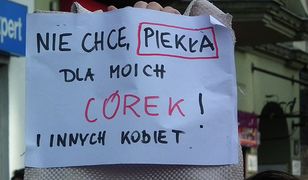 xpert
NIE CHCĘ, PIEKŁA
DLA MOICH
CÓREK!
I INNYCH KOBIET